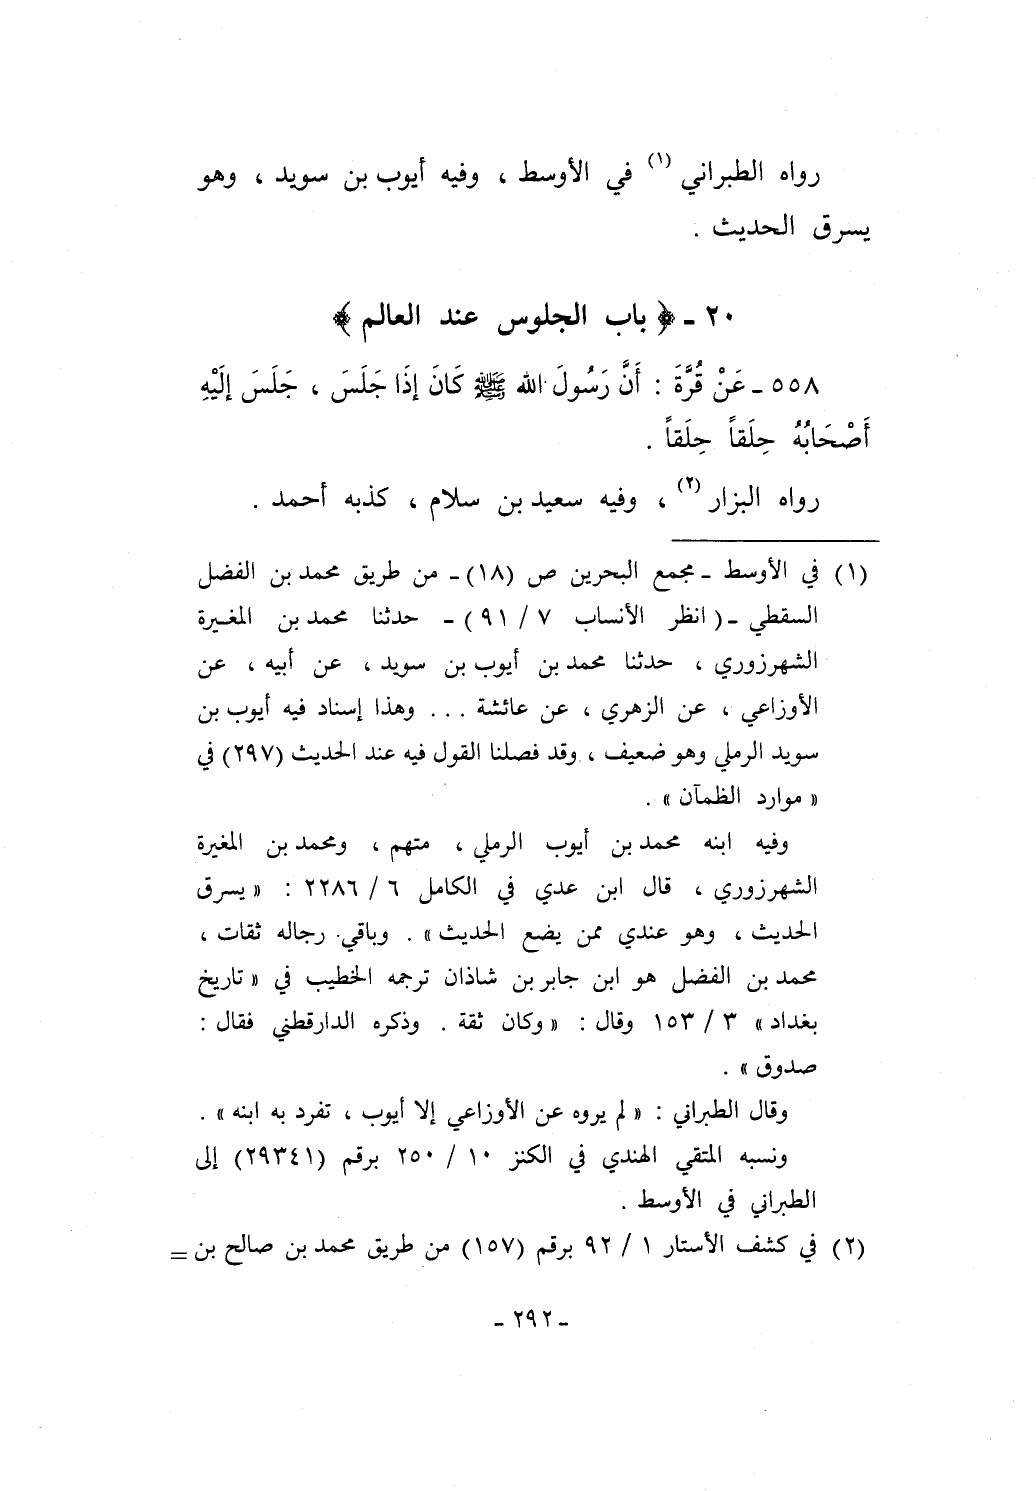 رواه الطبراني (١) في الأوسط ، وفيه أيوب بن سويد ، وهو
يسرق الحديث .
٢٠ ـ ﴿ باب الجلوس عند العالم ﴾
٥٥٨ ـ عَنْ قُرَّةَ : أَنَّ رَسُولَ الله ﷺ كَانَ إِذَا جَلَسَ ، جَلَسَ إِلَيْهِ
أَصْحَابُهُ حِلَقاً حِلَقاً .
رواه البزار (٢) ، وفيه سعيد بن سلام ، كذبه أحمد .
(١) في الأوسط ـ مجمع البحرين ص (١٨) ـ من طريق محمد بن الفضل
السقطي ـ ( انظر الأنساب ٧ / ٩١ ) ـ حدثنا محمد بن المغيرة
الشهرزوري ، حدثنا محمد بن أيوب بن سويد ، عن أبيه ، عن
الأوزاعي ، عن الزهري ، عن عائشة ... وهذا إسناد فيه أيوب بن
سويد الرملي وهو ضعيف ، وقد فصلنا القول فيه عند الحديث (٢٩٧) في
« موارد الظمآن » .
وفيه ابنه محمد بن أيوب الرملي ، متهم ، ومحمد بن المغيرة
الشهرزوري ، قال ابن عدي في الكامل ٦ / ٢٢٨٦ : « يسرق
الحديث ، وهو عندي ممن يضع الحديث » . وباقي رجاله ثقات ،
محمد بن الفضل هو ابن جابر بن شاذان ترجمه الخطيب في « تاريخ
بغداد » ٣ / ١٥٣ وقال : « وكان ثقة . وذكره الدارقطني فقال :
صدوق » .
وقال الطبراني : « لم يروه عن الأوزاعي إلا أيوب ، تفرد به ابنه » .
ونسبه المتقي الهندي في الكنز ١٠ / ٢٥٠ برقم (٢٩٣٤١) إلى
الطبراني في الأوسط .
(٢) في كشف الأستار ١ / ٩٢ برقم (١٥٧) من طريق محمد بن صالح بن =
ـ ٢٩٢ ـ